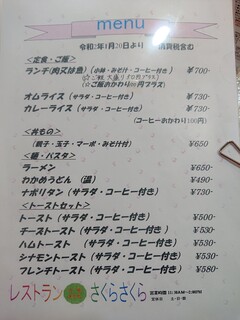 menu
令和2年1月20日より 消費税含む
<定食・ご飯>
ランチ(肉又は魚)(小鉢・みそ汁・コーヒー付き) ¥700-
(ご飯おかわり 円プラス)
オムライス(サラダ・コーヒー付き) ¥730-
カレーライス(サラダ・コーヒー付き) ¥730-
(コーヒーおかわり100円)
<丼もの>
(親子・玉子・マーボ・みそ汁付) ¥650
<麺・パスタ>
ラーメン ¥650-
わかめうどん (温) ¥490-
ナポリタン(サラダ・コーヒー付き) ¥730-
<トーストセット>
トースト(サラダ・コーヒー付き) ¥500
チーズトースト(サラダ・コーヒー付き) ¥530
ハムトースト (サラダ・コーヒー付き) ¥530
シナモントースト(サラダ・コーヒー付き) ¥580
フレンチトースト(サラダ・コーヒー付き) ¥580
レストラン さくらさくら 営業時間
定休日 土・日・祝